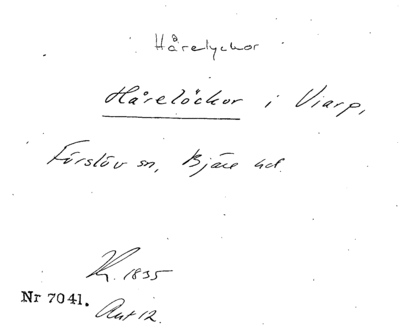 Hårelyckor
Hårelöckor i Viarp,
Förslöv sn, Bjäre hd.
1835
Nr 7041.
Akt 12.